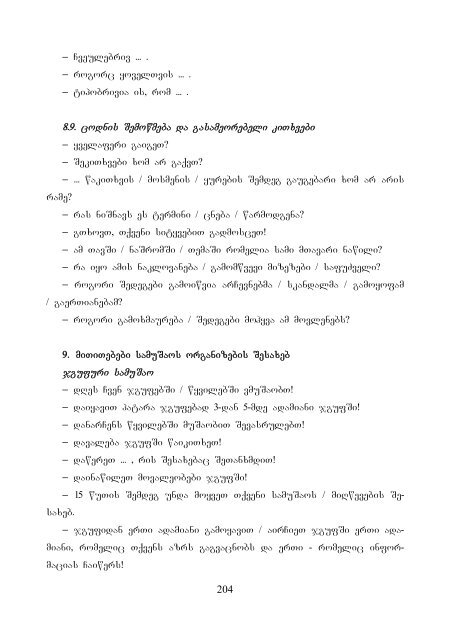 – ჩვეულებრივ ... .
– როგორც ყოველთვის ... .
– ტიპობრივია ის, რომ ... .
8.9. ცოდნის შემოწმება და გასამეორებელი კითხვები
– ყველაფერი გაიგეთ?
– შეკითხვები ხომ არ გაქვთ?
– ... წაკითხვის / მოსმენის / ყურების შემდეგ გაუგებარი ხომ არ არის
რამე?
– რას ნიშნავს ეს ტერმინი / ცნება / წარმოდგენა?
– გთხოვთ, თქვენი სიტყვებით გადმოსცეთ!
– ამ თავში / ნაშრომში / თემაში რომელია სამი მთავარი ნაწილი?
– რა იყო ამის ნაკლოვანება / გამომწვევი მიზეზები / საფუძველი?
– როგორი შედეგები გამოიწვია არჩევნებმა / სკანდალმა / გამოყოფამ
/ გაერთიანებამ?
– როგორი გამოხმაურება / შედეგები მოჰყვა ამ მოვლენებს?
9. მითითებები სამუშაოს ორგანიზების შესახებ
ჯგუფური სამუშაო
– დღეს ჩვენ ჯგუფებში / წყვილებში ვმუშაობთ!
– დაიყავით პატარა ჯგუფებად 3-დან 5-მდე ადამიანი ჯგუფში!
– დანარჩენს წყვილებში მუშაობით შევასრულებთ!
– დავალება ჯგუფში წაიკითხეთ!
– დაწერეთ ... , რის შესახებაც შეთანხმდით!
– დაინაწილეთ მოვალეობები ჯგუფში!
– 15 წუთის შემდეგ უნდა მოყვეთ თქვენი სამუშაოს / მიღწევების შე-
სახებ.
– ჯგუფიდან ერთი ადამიანი გამოყავით / აირჩიეთ ჯგუფში ერთი ადა-
მიანი, რომელიც თქვენს აზრს გაგვაცნობს და ერთი - რომელიც ინფორ-
მაციას ჩაიწერს!
204